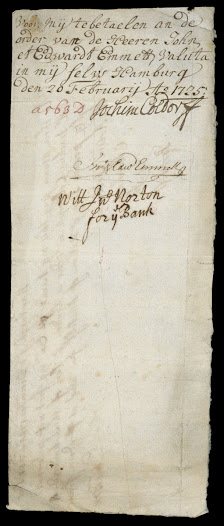 Voor mij te betaelen an de
order van de Heeren John
et Edwardt Emmett Valuta
in mij selvs Hamburg
den 26 February Ao 1725
a 563 D Jochim Coldorff
Emmett
Witt Jno Norton
for ye Bank